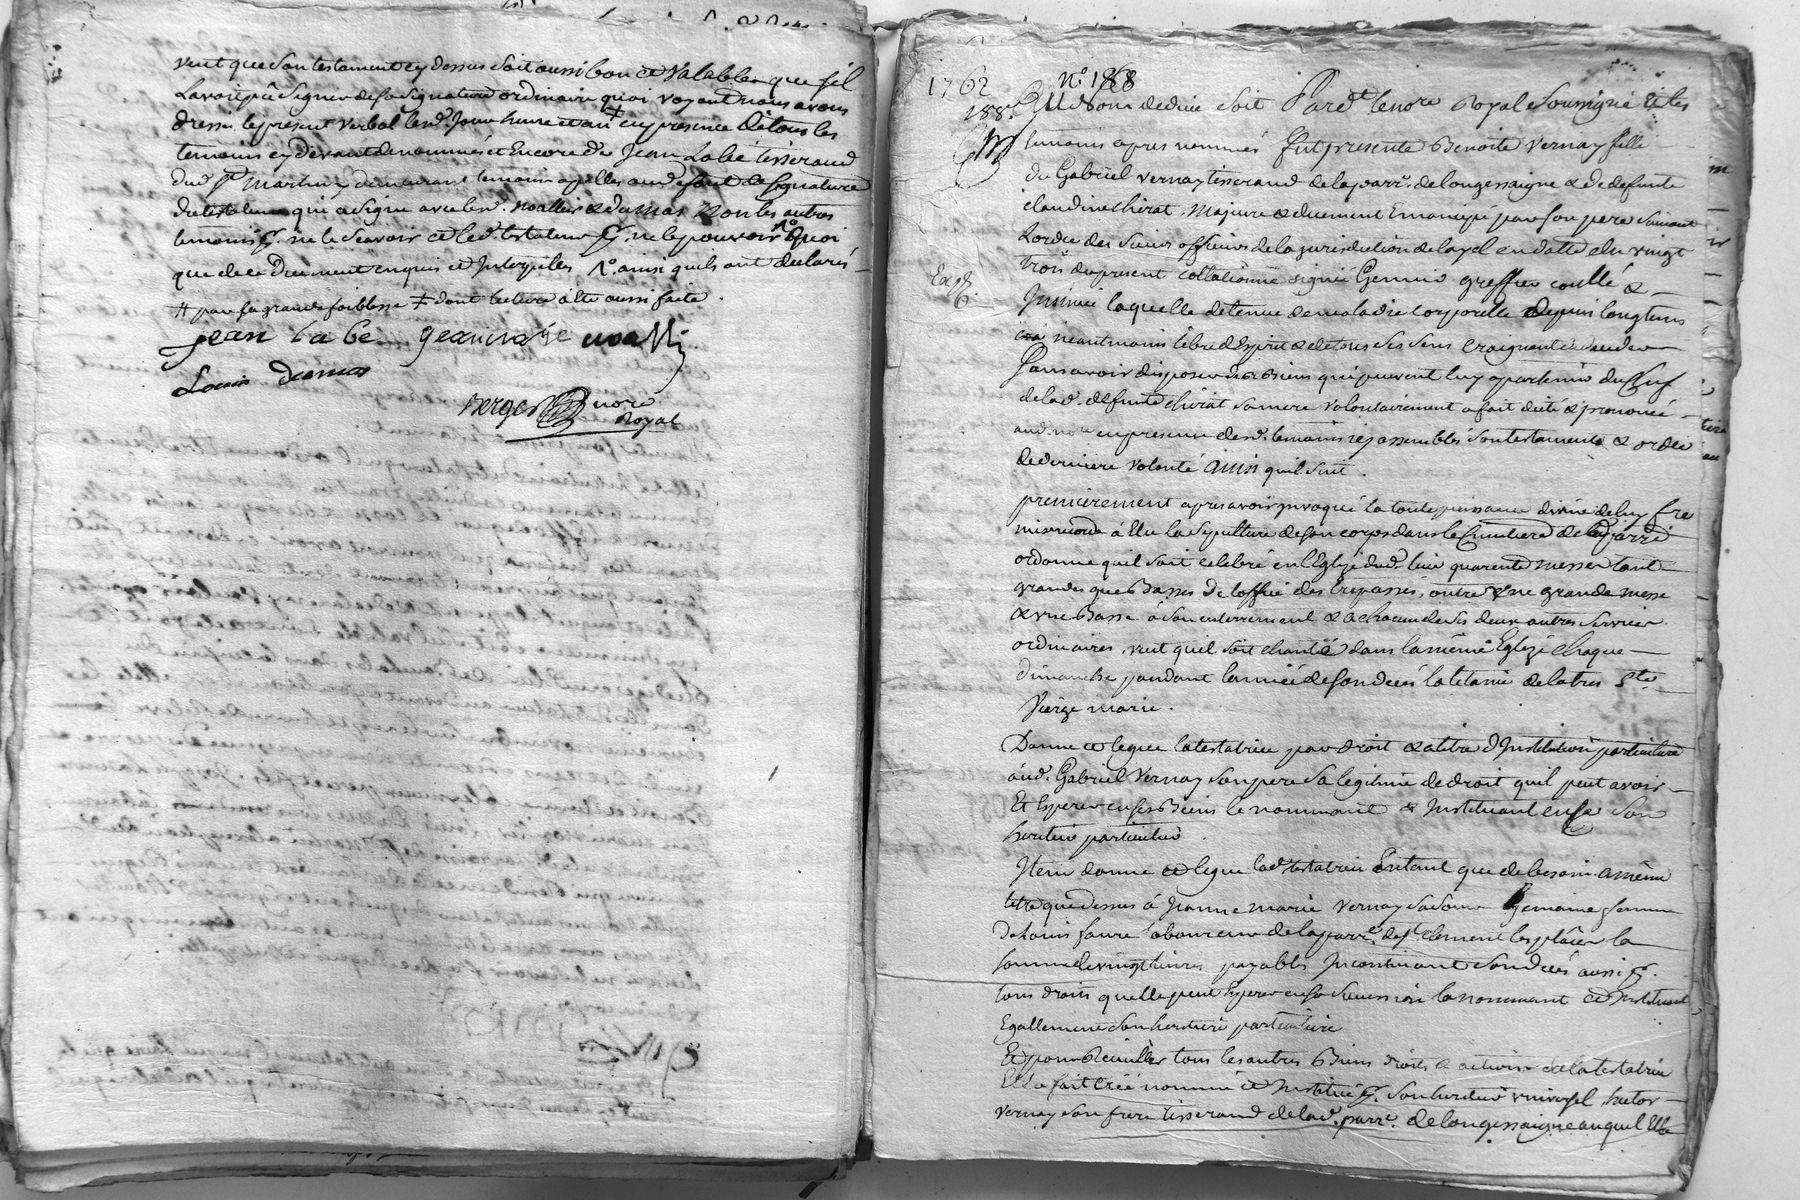 veut que son testament cy dessus soit aussi bon et valable que s'il
l'avoit pû signer de sa signature ordinaire quoi voyant nous avons
dressé le present verbal lesd. jour heure et an en presence de tous les
temoins cy devant denommés et Encore de Jean Labé tisserand
dud. St Martin y demeurant temoin apellé aud. defaut de signature
du testateur qui a signé avec lesd. noallis & dumas Non les autres
temoins pr. ne le sçavoir et led. testateur pr. ne le pouvoir # quoi
que de ce Duement enquis et Interpellés ainsi quils ont declarés
# par sa grande foiblesse ≠ dont lecture a été aussi faite.
jean la be jean marie noalli
Louis dumas
Berger nore
Royal
1762 No. 188
188e Au Nom de dieu soit Pardt. le nore Royal soussigné & les
temoins apres nommés fut presente Benoite Vernay fille
de Gabriel Vernay tisserand de la parr. de longessaigne & de defunte
claudine chirat, Majeure & duement Emancipé par son pere suivant
Lordre des sieurs officiers de la jurisdiction de layel en datte du vingt
trois du present collationné signé Gemin greffier contlé &
Expe
Insinué laquelle detenue de maladie corporelle depuis longtems
neantmoins libre d'Esprit & de tous ses sens Craignant de deceder
Sans avoir disposer de ses Biens qui peuvent luy apartenir du chef
de lad. defunte chirat sa mere volontairement a fait dicté & prononcé
aud. nore en presence desd. temoins icy assemblés son testament & ordce
de derniere volonté ainsi quil suit.
premierement apres avoir invoqué la toute puissance divine de luy fre
misericorde à Elu la sepulture de son corps dans le Cimetiere de lad. parre
ordonne quil soit celebré en l'Eglize dud. lieu quarente messes tant
grandes que Basses De loffice des trepassés, outre Une grande messe
& une Basse à son enterrement & a chacun de ses deux autres services
ordinaires, veut quil soit chanté dans la même Eglize chaque
dimanche pendant l'année de son decés la letanie de la tres Ste
Vierge marie.
Donne et legue la testatrice par droit & a titre d'Institution particuliere
aud. Gabriel Vernay son pere sa legitime de droit quil peut avoir
Et Esperer en ses Biens le nommant & Instituant en ce son
heritier particulier.
Item donne et legue lad. testatrice Entant que de besoin a même
titre que dessus à Jeanne marie Vernay sa soeur Germaine femme
De Louis faure laboureur de la parre. de St. clement les places la
somme de vingt livres payables Incontinant son decés aussi pr.
tous droits quelle peut Esperer en sa succession la nommant et Instituant
Egallement son heritiere particuliere
Et pour Recuillir tous les autres Biens droits & actions de la testatrice
Elle a fait Créé nommé et Institué pr. son heritier universel hector
Vernay son frere tisserand de lad. parre. de longessaigne auquel Elle